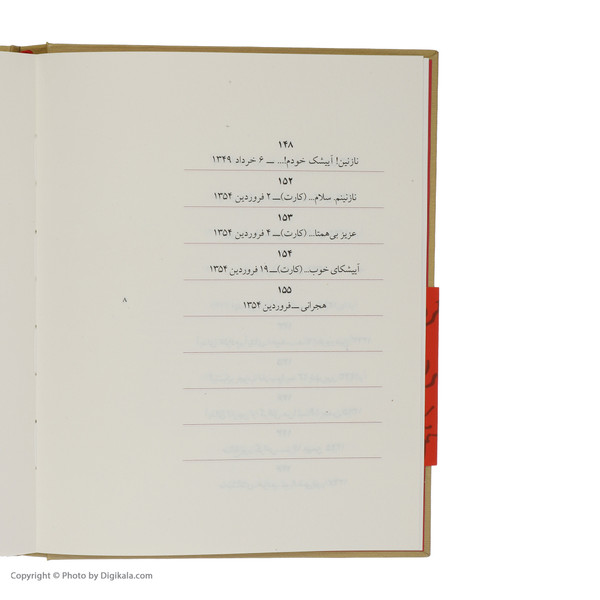 ۱۴۸
نازنین! آیشک خودم!... ــ ۶ خرداد ۱۳۴۹
۱۵۲
نازنینم. سلام... (کارت)ــ ۲ فروردین ۱۳۵۴
۱۵۳
عزیز بی‌همتا... (کارت)ــ ۴ فروردین ۱۳۵۴
۱۵۴
آییشکای خوب... (کارت)ــ ۱۹ فروردین ۱۳۵۴
۱۵۵
هجرانی ــ فروردین ۱۳۵۴
۸
Copyright © Photo by Digikala.com